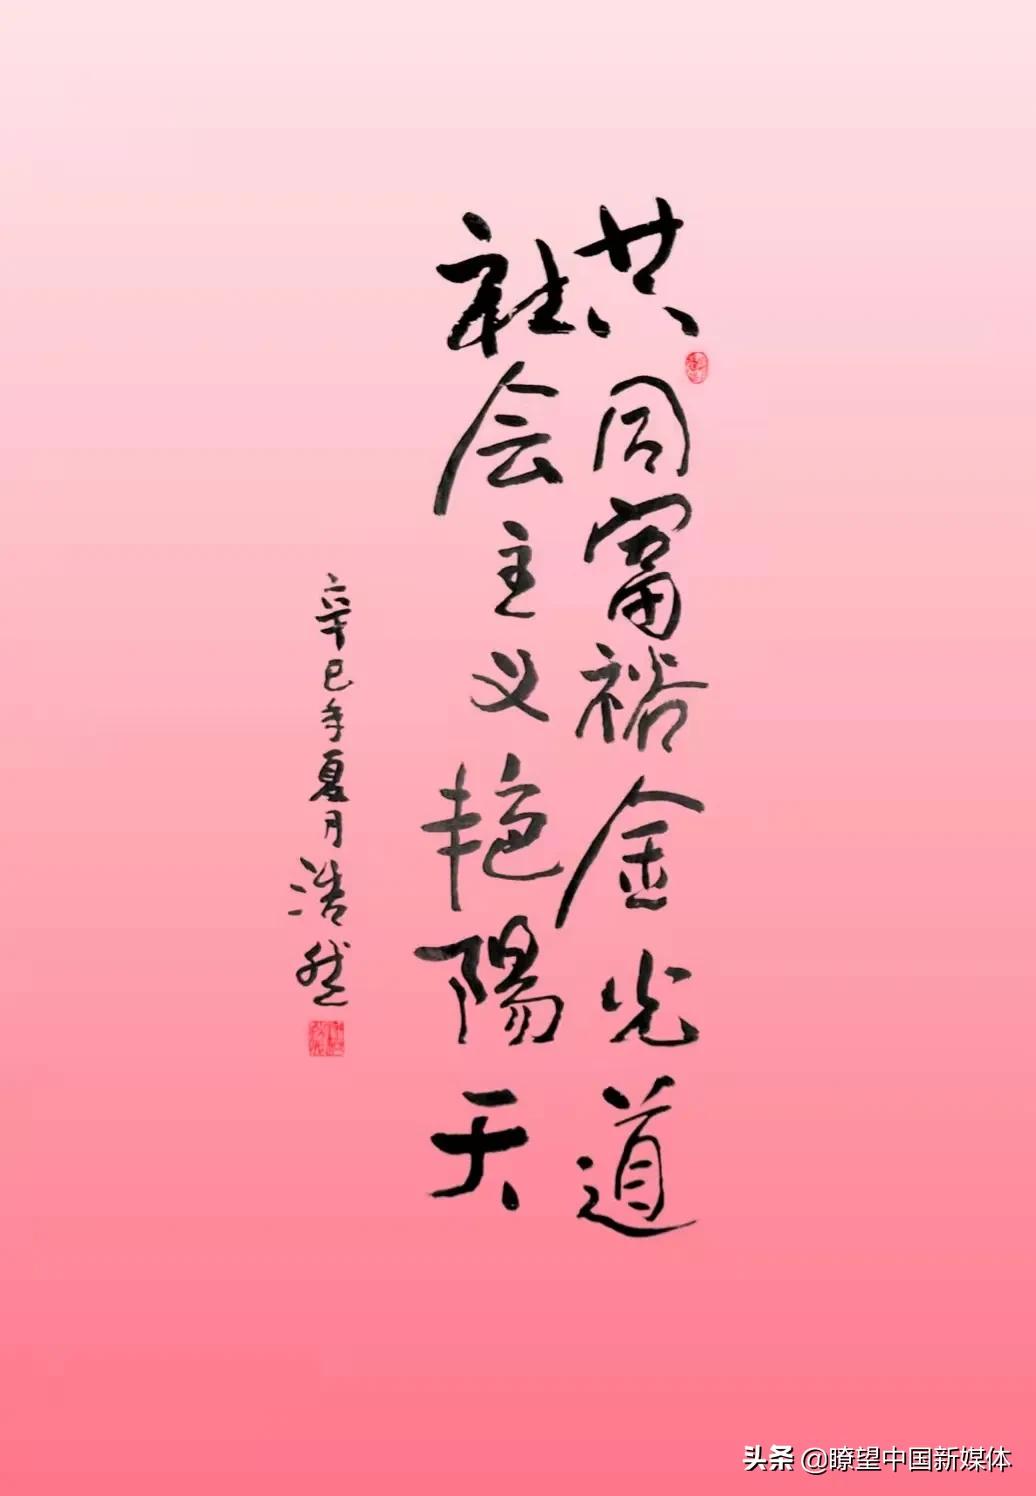 共同富裕金光道
社会主义艳陽天
辛巳年夏月浩然
头条 @瞭望中国新媒体